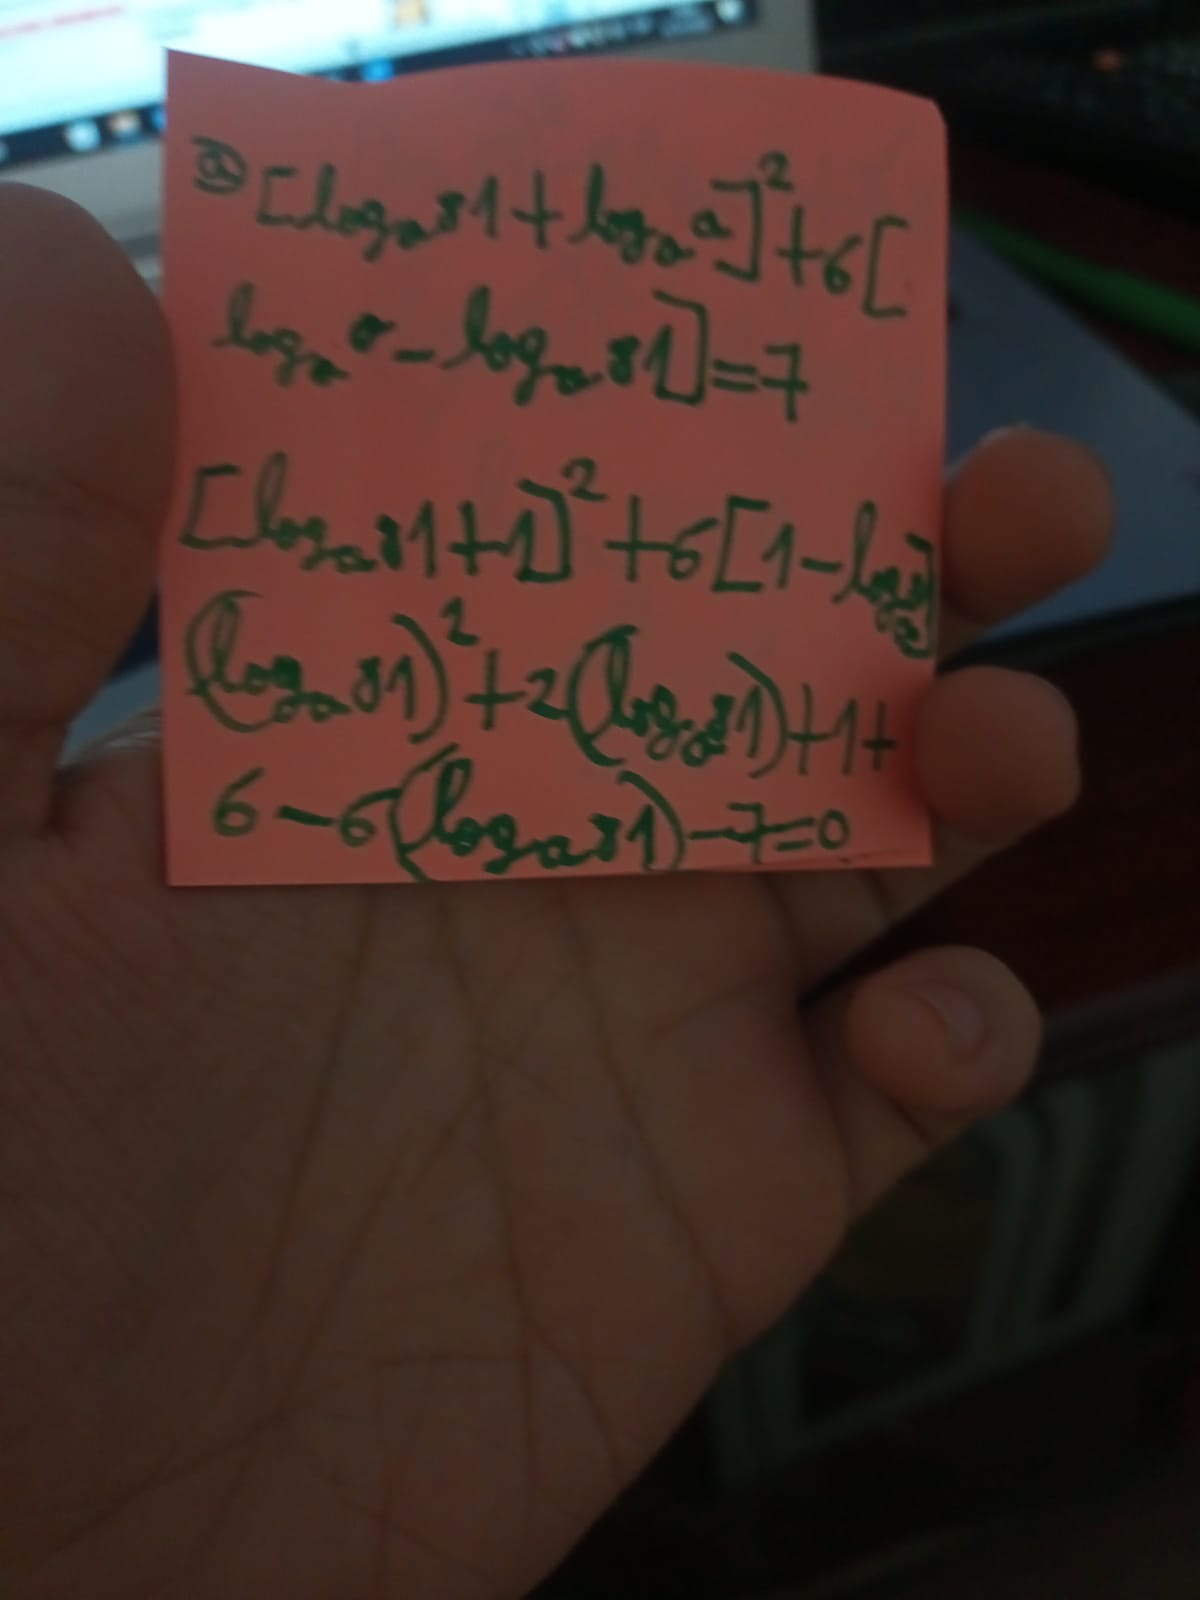 ② [logₐ81+logₐa]²+6[
logₐa-logₐ81]=7
[logₐ81+1]²+6[1-logₐ81]
(logₐ81)²+2(logₐ81)+1+
6-6(logₐ81)-7=0